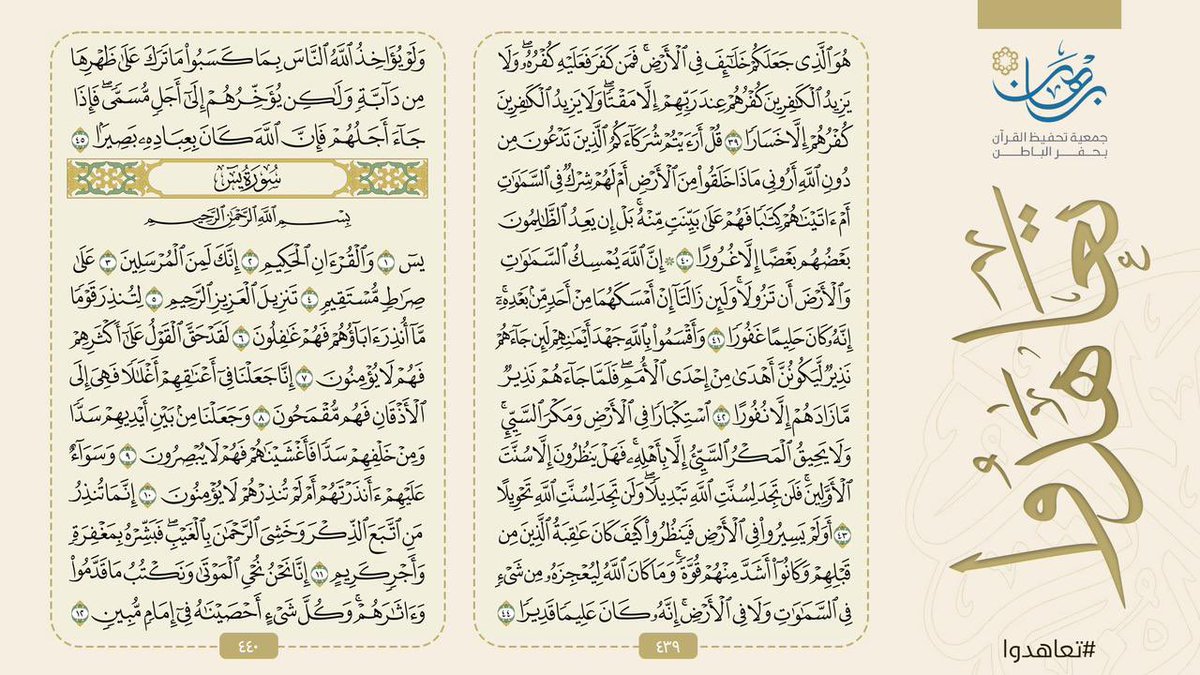 برهان
جمعية تحفيظ القرآن
بحفر الباطن
تعاهدوا
#تعاهدوا
هُوَ ٱلَّذِى جَعَلَكُمْ خَلَٰٓئِفَ فِى ٱلْأَرْضِ ۚ فَمَن كَفَرَ فَعَلَيْهِ كُفْرُهُۥ ۖ وَلَا
يَزِيدُ ٱلْكَٰفِرِينَ كُفْرُهُمْ عِندَ رَبِّهِمْ إِلَّا مَقْتًا ۖ وَلَا يَزِيدُ ٱلْكَٰفِرِينَ
كُفْرُهُمْ إِلَّا خَسَارًا ٣٩ قُلْ أَرَءَيْتُمْ شُرَكَآءَكُمُ ٱلَّذِينَ تَدْعُونَ مِن
دُونِ ٱللَّهِ أَرُونِى مَاذَا خَلَقُوا۟ مِنَ ٱلْأَرْضِ أَمْ لَهُمْ شِرْكٌ فِى ٱلسَّمَٰوَٰتِ
أَمْ ءَاتَيْنَٰهُمْ كِتَٰبًا فَهُمْ عَلَىٰ بَيِّنَتٍ مِّنْهُ ۚ بَلْ إِن يَعِدُ ٱلظَّٰلِمُونَ
بَعْضُهُم بَعْضًا إِلَّا غُرُورًا ٤٠ ۞ إِنَّ ٱللَّهَ يُمْسِكُ ٱلسَّمَٰوَٰتِ
وَٱلْأَرْضَ أَن تَزُولَا ۚ وَلَئِن زَالَتَآ إِنْ أَمْسَكَهُمَا مِنْ أَحَدٍ مِّنۢ بَعْدِهِۦٓ ۚ
إِنَّهُۥ كَانَ حَلِيمًا غَفُورًا ٤١ وَأَقْسَمُوا۟ بِٱللَّهِ جَهْدَ أَيْمَٰنِهِمْ لَئِن جَآءَهُمْ
نَذِيرٌ لَّيَكُونُنَّ أَهْدَىٰ مِنْ إِحْدَى ٱلْأُمَمِ ۖ فَلَمَّا جَآءَهُمْ نَذِيرٌ
مَّا زَادَهُمْ إِلَّا نُفُورًا ٤٢ ٱسْتِكْبَارًا فِى ٱلْأَرْضِ وَمَكْرَ ٱلسَّيِّئِ ۚ
وَلَا يَحِيقُ ٱلْمَكْرُ ٱلسَّيِّئُ إِلَّا بِأَهْلِهِۦ ۚ فَهَلْ يَنظُرُونَ إِلَّا سُنَّتَ
ٱلْأَوَّلِينَ ۚ فَلَن تَجِدَ لِسُنَّتِ ٱللَّهِ تَبْدِيلًا ۖ وَلَن تَجِدَ لِسُنَّتِ ٱللَّهِ تَحْوِيلًا
٤٣ أَوَلَمْ يَسِيرُوا۟ فِى ٱلْأَرْضِ فَيَنظُرُوا۟ كَيْفَ كَانَ عَٰقِبَةُ ٱلَّذِينَ مِن
قَبْلِهِمْ وَكَانُوٓا۟ أَشَدَّ مِنْهُمْ قُوَّةً ۚ وَمَا كَانَ ٱللَّهُ لِيُعْجِزَهُۥ مِن شَىْءٍ
فِى ٱلسَّمَٰوَٰتِ وَلَا فِى ٱلْأَرْضِ ۚ إِنَّهُۥ كَانَ عَلِيمًا قَدِيرًا ٤٤
٤٣٩
وَلَوْ يُؤَاخِذُ ٱللَّهُ ٱلنَّاسَ بِمَا كَسَبُوا۟ مَا تَرَكَ عَلَىٰ ظَهْرِهَا
مِن دَآبَّةٍ وَلَٰكِن يُؤَخِّرُهُمْ إِلَىٰٓ أَجَلٍ مُّسَمًّى ۖ فَإِذَا
جَآءَ أَجَلُهُمْ فَإِنَّ ٱللَّهَ كَانَ بِعِبَادِهِۦ بَصِيرًۢا ٤٥
سُورَةُ يسٓ
بِسْمِ ٱللَّهِ ٱلرَّحْمَٰنِ ٱلرَّحِيمِ
يسٓ ١ وَٱلْقُرْءَانِ ٱلْحَكِيمِ ٢ إِنَّكَ لَمِنَ ٱلْمُرْسَلِينَ ٣ عَلَىٰ
صِرَٰطٍ مُّسْتَقِيمٍ ٤ تَنزِيلَ ٱلْعَزِيزِ ٱلرَّحِيمِ ٥ لِتُنذِرَ قَوْمًا
مَّآ أُنذِرَ ءَابَآؤُهُمْ فَهُمْ غَٰفِلُونَ ٦ لَقَدْ حَقَّ ٱلْقَوْلُ عَلَىٰٓ أَكْثَرِهِمْ
فَهُمْ لَا يُؤْمِنُونَ ٧ إِنَّا جَعَلْنَا فِىٓ أَعْنَٰقِهِمْ أَغْلَٰلًا فَهِىَ إِلَى
ٱلْأَذْقَانِ فَهُم مُّقْمَحُونَ ٨ وَجَعَلْنَا مِنۢ بَيْنِ أَيْدِيهِمْ سَدًّا
وَمِنْ خَلْفِهِمْ سَدًّا فَأَغْشَيْنَٰهُمْ فَهُمْ لَا يُبْصِرُونَ ٩ وَسَوَآءٌ
عَلَيْهِمْ ءَأَنذَرْتَهُمْ أَمْ لَمْ تُنذِرْهُمْ لَا يُؤْمِنُونَ ١٠ إِنَّمَا تُنذِرُ
مَنِ ٱتَّبَعَ ٱلذِّكْرَ وَخَشِىَ ٱلرَّحْمَٰنَ بِٱلْغَيْبِ ۖ فَبَشِّرْهُ بِمَغْفِرَةٍ
وَأَجْرٍ كَرِيمٍ ١١ إِنَّا نَحْنُ نُحْىِ ٱلْمَوْتَىٰ وَنَكْتُبُ مَا قَدَّمُوا۟
وَءَاثَٰرَهُمْ ۚ وَكُلَّ شَىْءٍ أَحْصَيْنَٰهُ فِىٓ إِمَامٍ مُّبِينٍ ١٢
٤٤٠